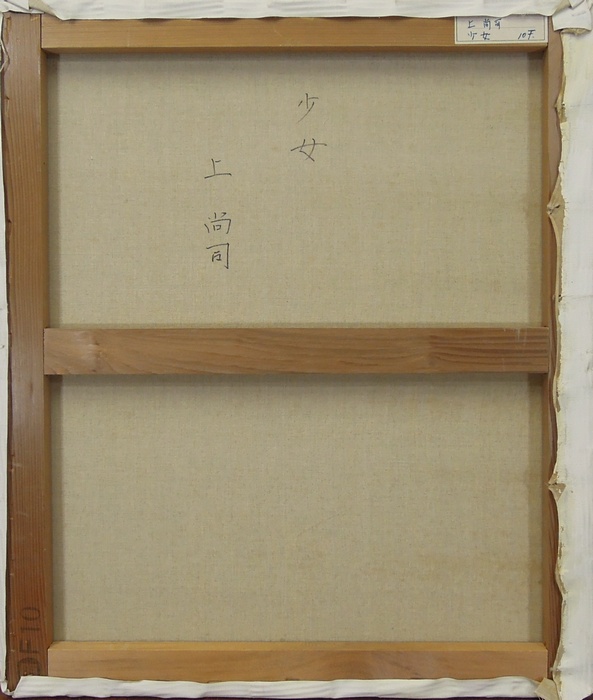 上 尚司
少女 10F.
少女
上 尚司
DF10